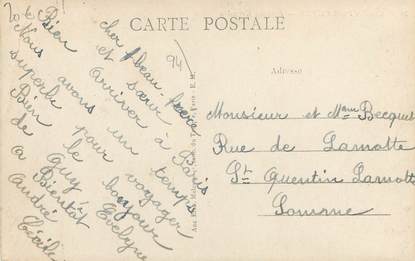 CARTE POSTALE
Adresse
94
Bien
cher beau frère
et sœur
arriver à Paris
Nous avons un temps
superbe pour voyager
Bien le bonjour
de Guy Evelyne
a Bientôt
André
Cécile
Monsieur et Mme Becquet
Rue de Lamotte
St Quentin Lamotte
Somme